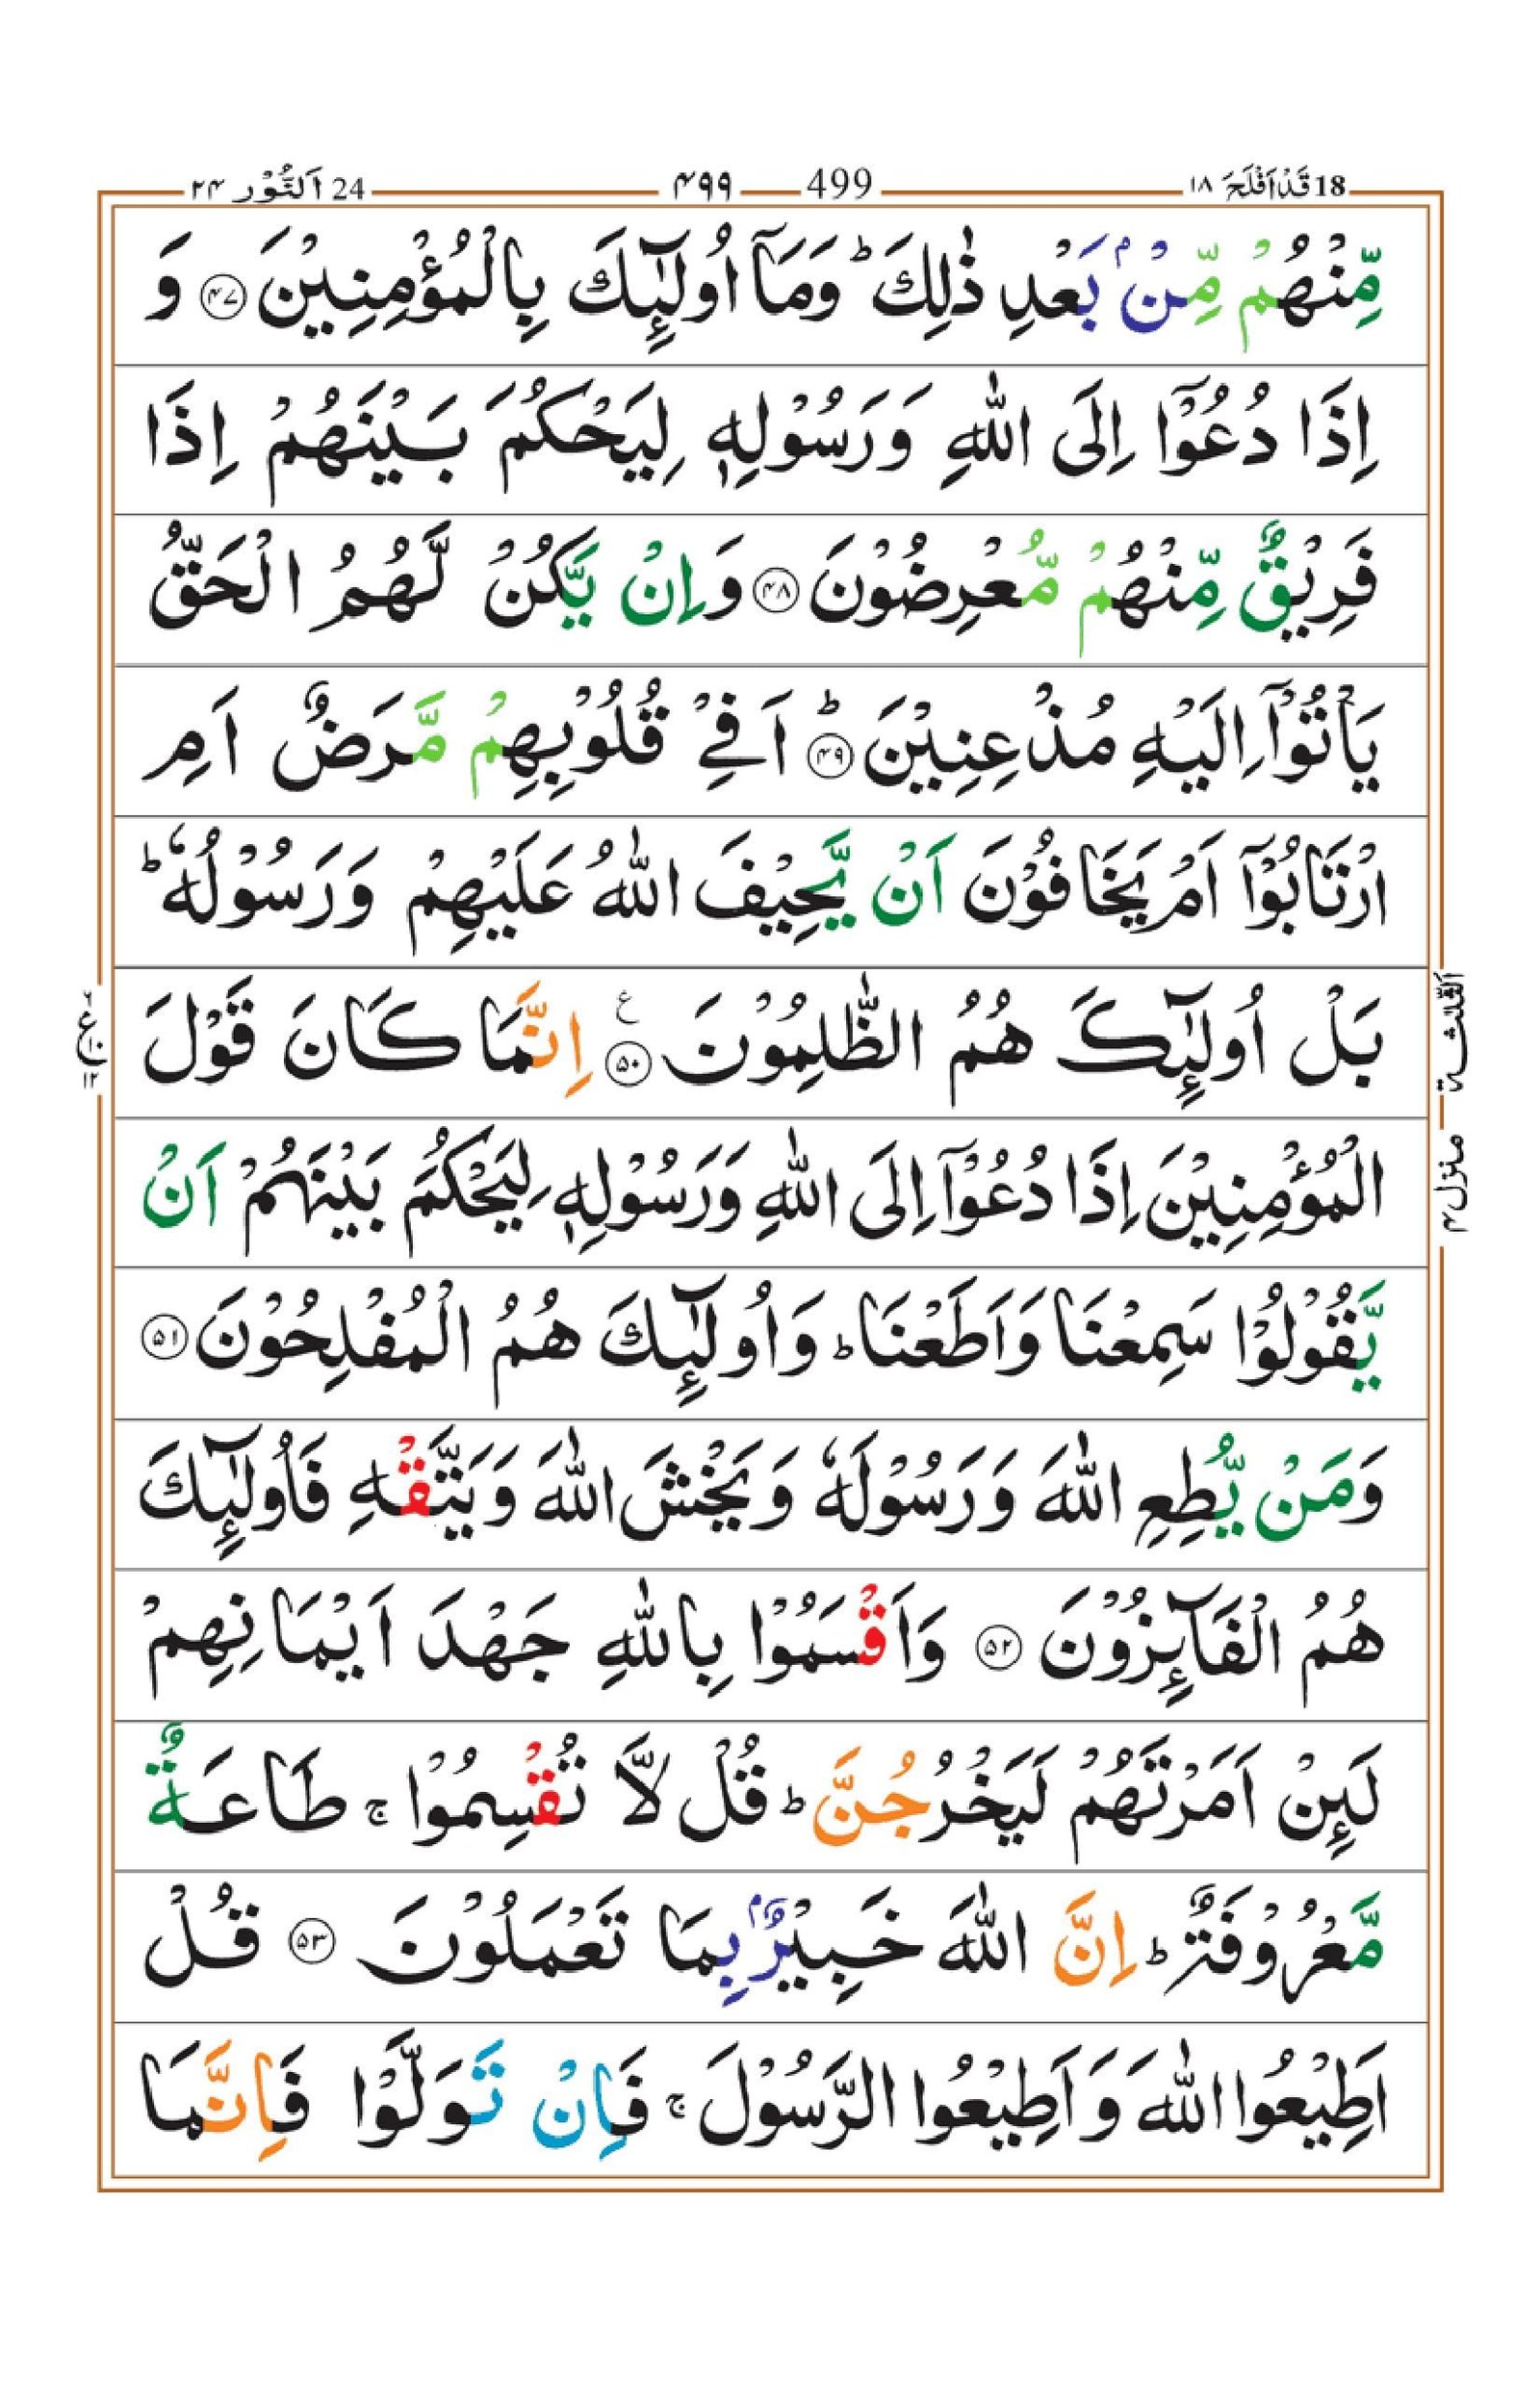 18 قَدْ اَفْلَحَ ١٨
499 ۴۹۹
24 اَلنُّوْر ۲۴
مِّنْهُمْ مِّنْۢ بَعْدِ ذٰلِكَ ؕ وَمَاۤ اُولٰٓئِكَ بِالْمُؤْمِنِیْنَ ﴿۴۷﴾ وَ
اِذَا دُعُوْۤا اِلَی اللّٰهِ وَرَسُوْلِهٖ لِیَحْكُمَ بَیْنَهُمْ اِذَا
فَرِیْقٌ مِّنْهُمْ مُّعْرِضُوْنَ ﴿۴۸﴾ وَاِنْ یَّكُنْ لَّهُمُ الْحَقُّ
یَاْتُوْۤا اِلَیْهِ مُذْعِنِیْنَ ﴿۴۹﴾ؕ اَفِیْ قُلُوْبِهِمْ مَّرَضٌ اَمِ
ارْتَابُوْۤا اَمْ یَخَافُوْنَ اَنْ یَّحِیْفَ اللّٰهُ عَلَیْهِمْ وَرَسُوْلُهٗ ؕ
بَلْ اُولٰٓئِكَ هُمُ الظّٰلِمُوْنَ ﴿۵۰﴾ ع اِنَّمَا كَانَ قَوْلَ
الْمُؤْمِنِیْنَ اِذَا دُعُوْۤا اِلَی اللّٰهِ وَرَسُوْلِهٖ لِیَحْكُمَ بَیْنَهُمْ اَنْ
یَّقُوْلُوْا سَمِعْنَا وَاَطَعْنَا ؕ وَاُولٰٓئِكَ هُمُ الْمُفْلِحُوْنَ ﴿۵۱﴾
وَمَنْ یُّطِعِ اللّٰهَ وَرَسُوْلَهٗ وَیَخْشَ اللّٰهَ وَیَتَّقْهِ فَاُولٰٓئِكَ
هُمُ الْفَآئِزُوْنَ ﴿۵۲﴾ وَاَقْسَمُوْا بِاللّٰهِ جَهْدَ اَیْمَانِهِمْ
لَئِنْ اَمَرْتَهُمْ لَیَخْرُجُنَّ ؕ قُلْ لَّا تُقْسِمُوْا ۚ طَاعَةٌ
مَّعْرُوْفَةٌ ؕ اِنَّ اللّٰهَ خَبِیْرٌۢ بِمَا تَعْمَلُوْنَ ﴿۵۳﴾ قُلْ
اَطِیْعُوا اللّٰهَ وَاَطِیْعُوا الرَّسُوْلَ ۚ فَاِنْ تَوَلَّوْا فَاِنَّمَا
الثلثة
منزل ۴
ع
۱۲